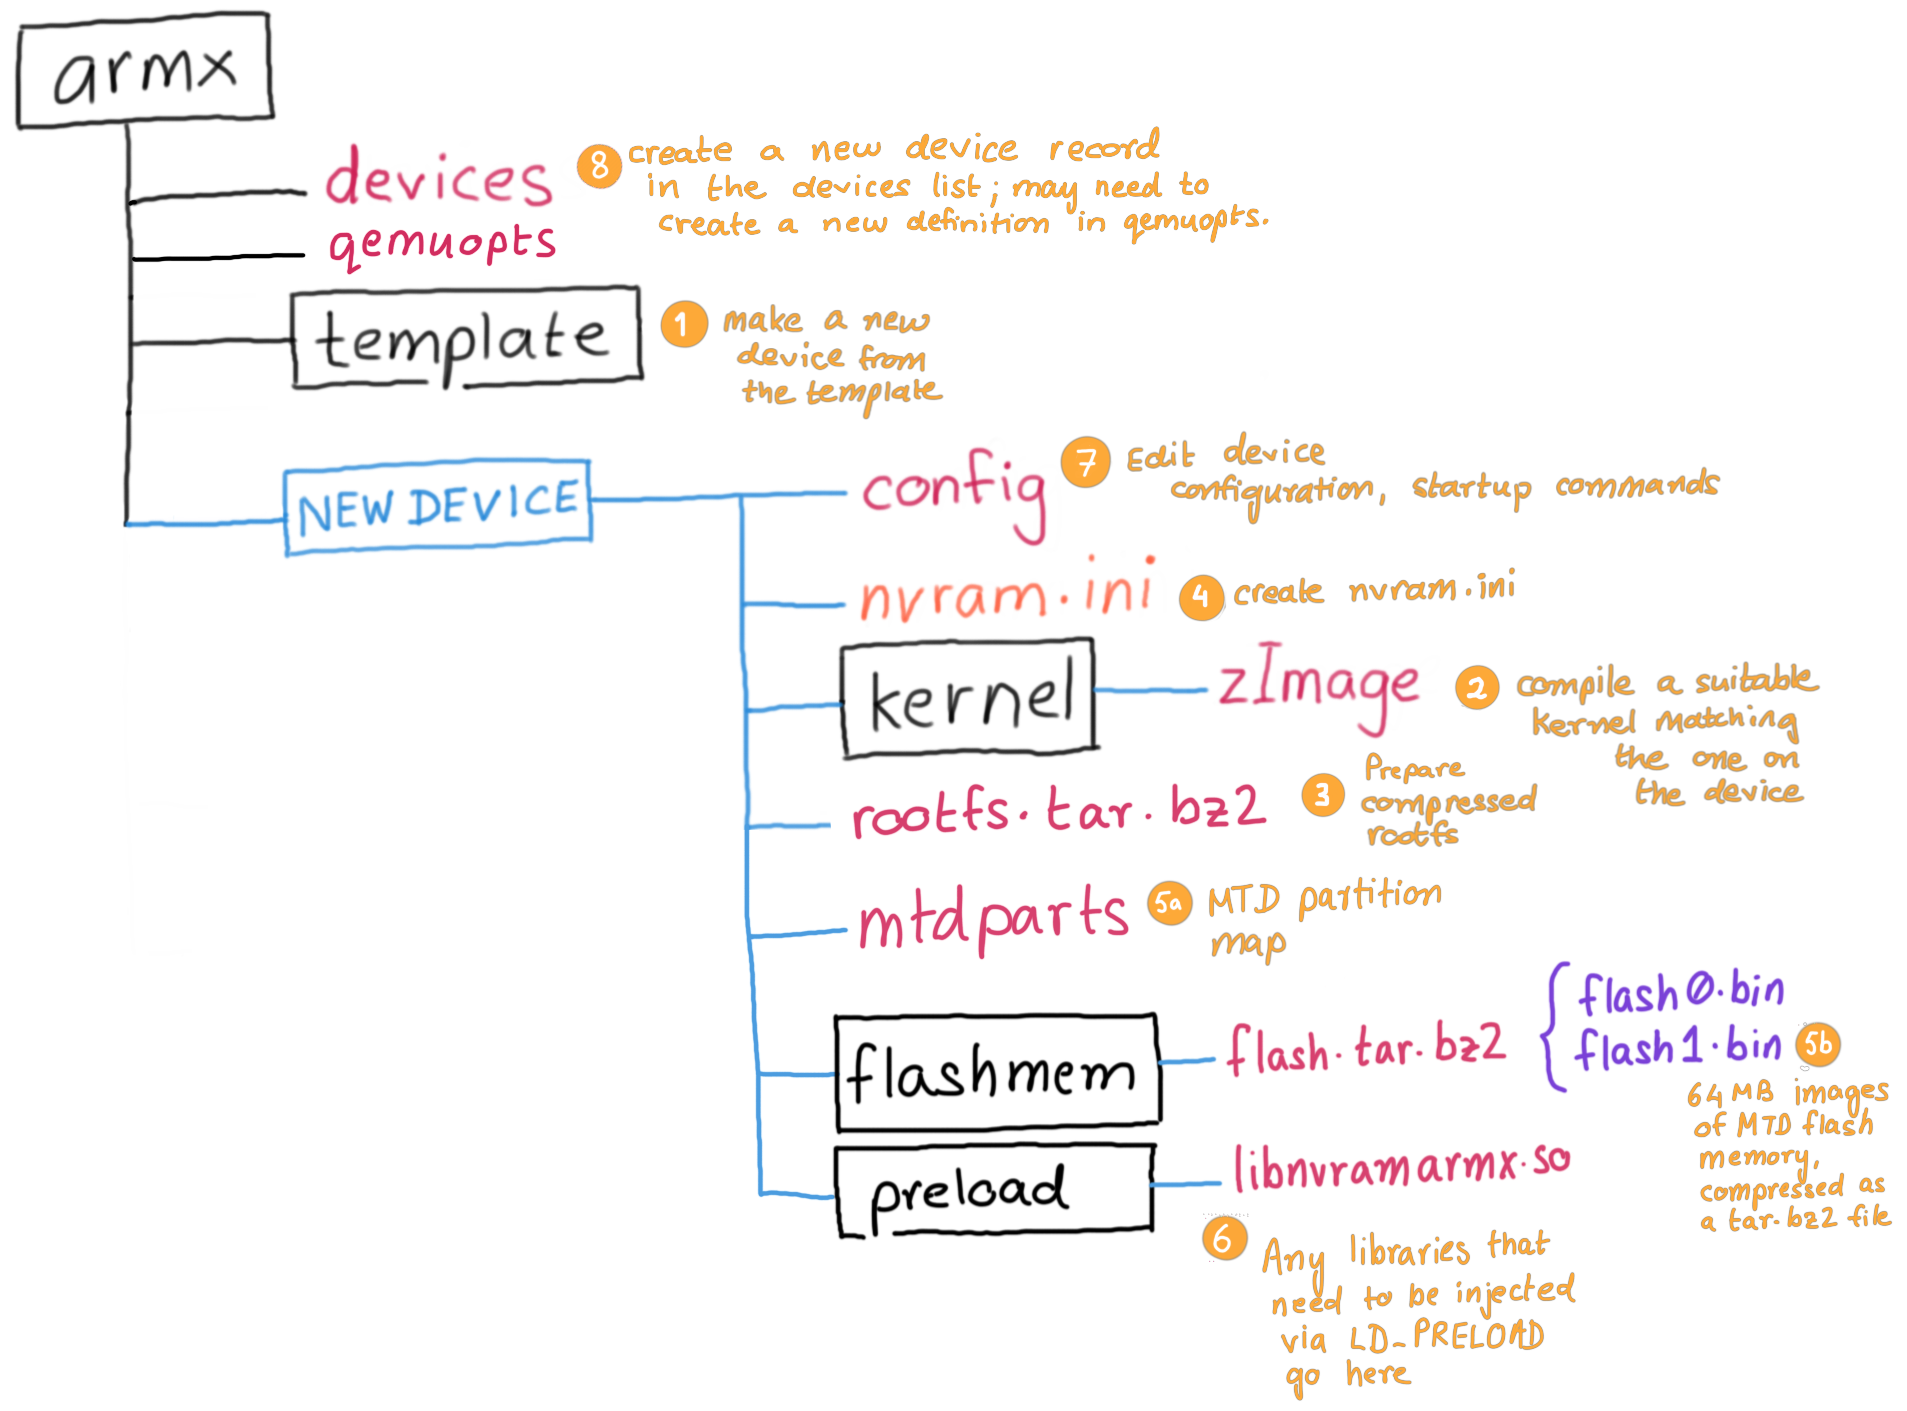 armx
devices
8
create a new device record
in the devices list; may need to
create a new definition in qemuopts.
qemuopts
template
1
make a new
device from
the template
NEW DEVICE
config
7
Edit device
configuration, startup commands
nvram.ini
4
create nvram.ini
kernel
zImage
2
compile a suitable
kernel matching
the one on
the device
rootfs.tar.bz2
3
Prepare
compressed
rootfs
mtdparts
5a
MTD partition
map
flashmem
flash.tar.bz2
flash0.bin
flash1.bin
5b
64MB images
of MTD flash
memory,
compressed as
a tar.bz2 file
preload
libnvramarmx.so
6
Any libraries that
need to be injected
via LD_PRELOAD
go here